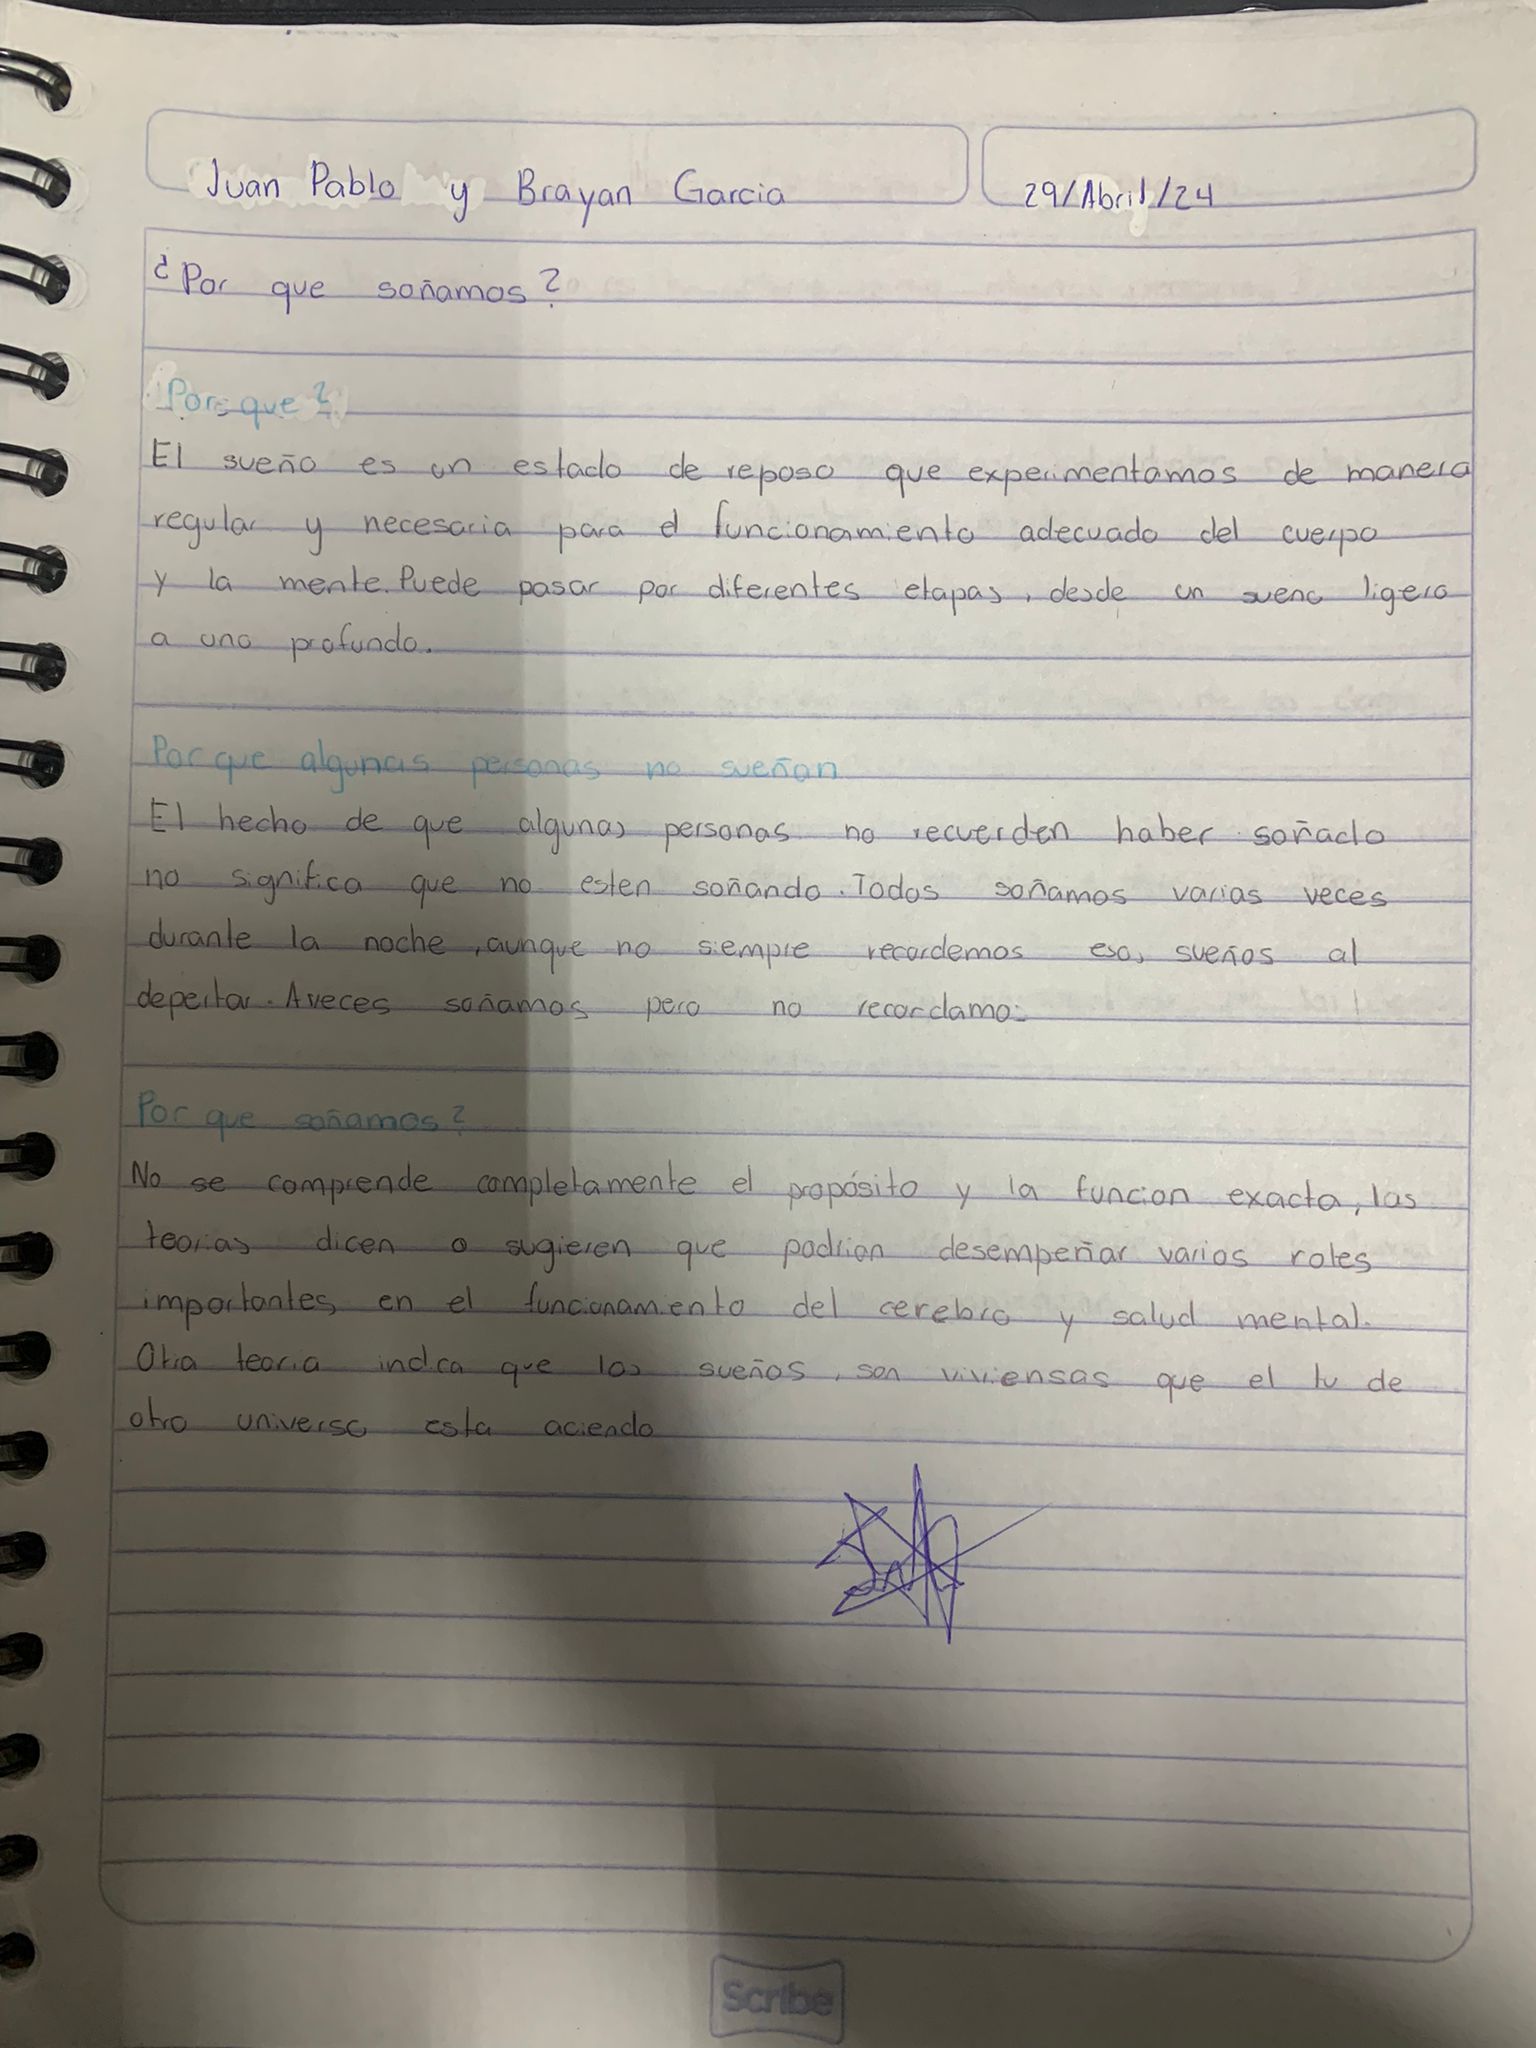 Juan Pablo y Brayan Garcia
29/Abril/24
¿Por que soñamos?
Por que?
El sueño es un estado de reposo que experimentamos de manera
regular y necesaria para el funcionamiento adecuado del cuerpo
y la mente. Puede pasar por diferentes etapas, desde un sueno ligero
a uno profundo.
Por que algunas personas no sueñan
El hecho de que algunas personas no recuerden haber soñado
no significa que no esten soñando. Todos soñamos varias veces
durante la noche, aunque no siempre recordemos esos sueños al
depertar. Aveces soñamos pero no recordamos
Por que soñamos?
No se comprende completamente el propósito y la funcion exacta, las
teorias dicen o sugieren que podrian desempeñar varios roles
importantes en el funcionamiento del cerebro y salud mental.
Otra teoria indica que los sueños, son viviensas que el tu de
otro universo esta aciendo
Scribe